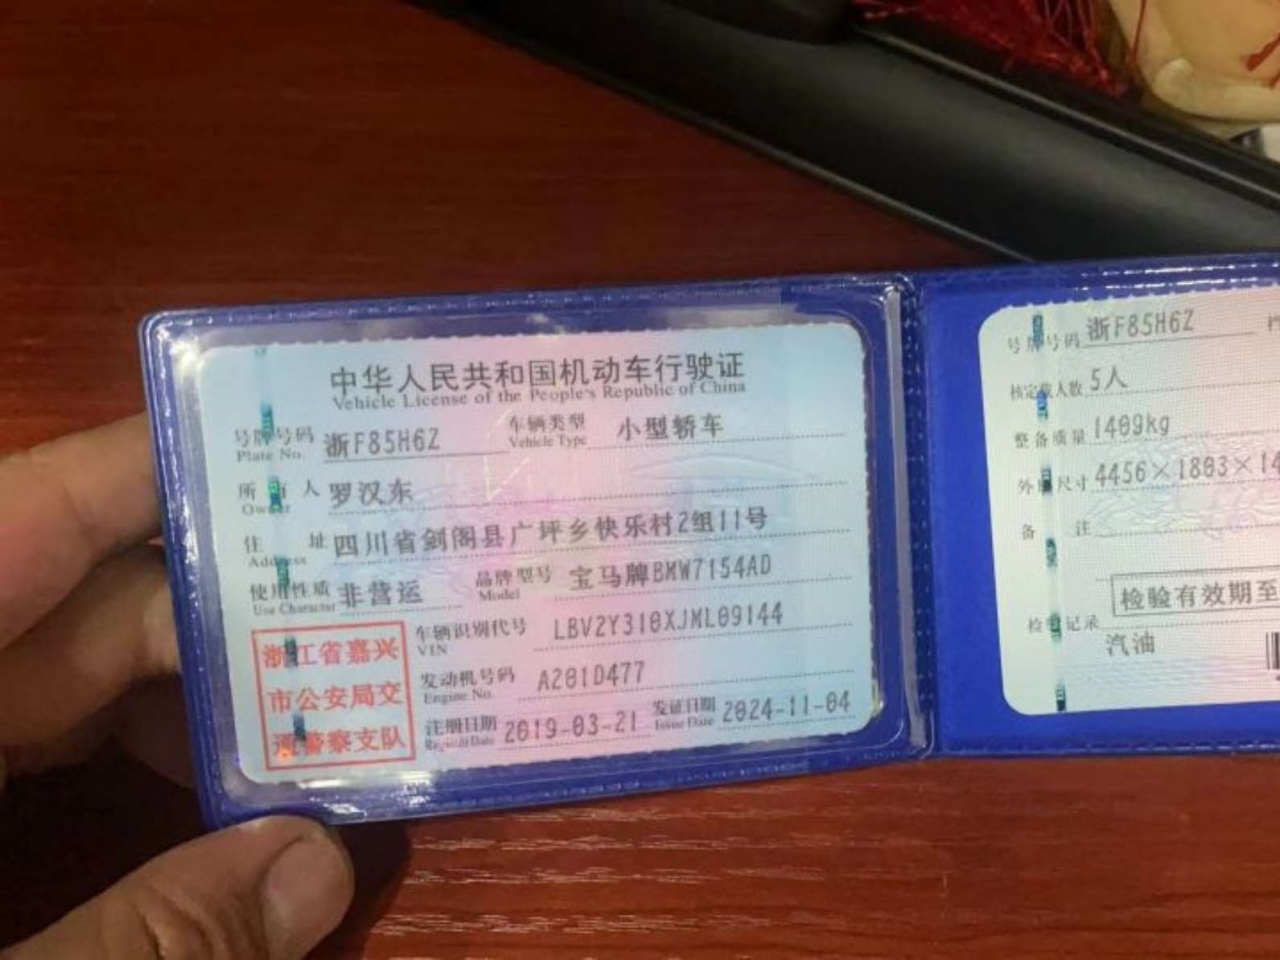 中华人民共和国机动车行驶证
Vehicle License of the People's Republic of China
号牌号码 浙F85H6Z 车辆类型 小型轿车
Plate No. Vehicle Type
所有人 罗汉东
Owner
住 址 四川省剑阁县广坪乡快乐村2组11号
Address
使用性质 非营运 品牌型号 宝马牌BMW7154AD
Use Character Model
浙江省嘉兴
市公安局交
通警察支队
车辆识别代号 LBV2Y310XJML09144
VIN
发动机号码 A281D477
Engine No.
注册日期 2019-03-21 发证日期 2024-11-04
Register Date Issue Date
号牌号码 浙F85H6Z
核定载人数 5人
整备质量 1409kg
外廓尺寸 4456×1803×14
备 注
检验有效期至
检验记录
汽油